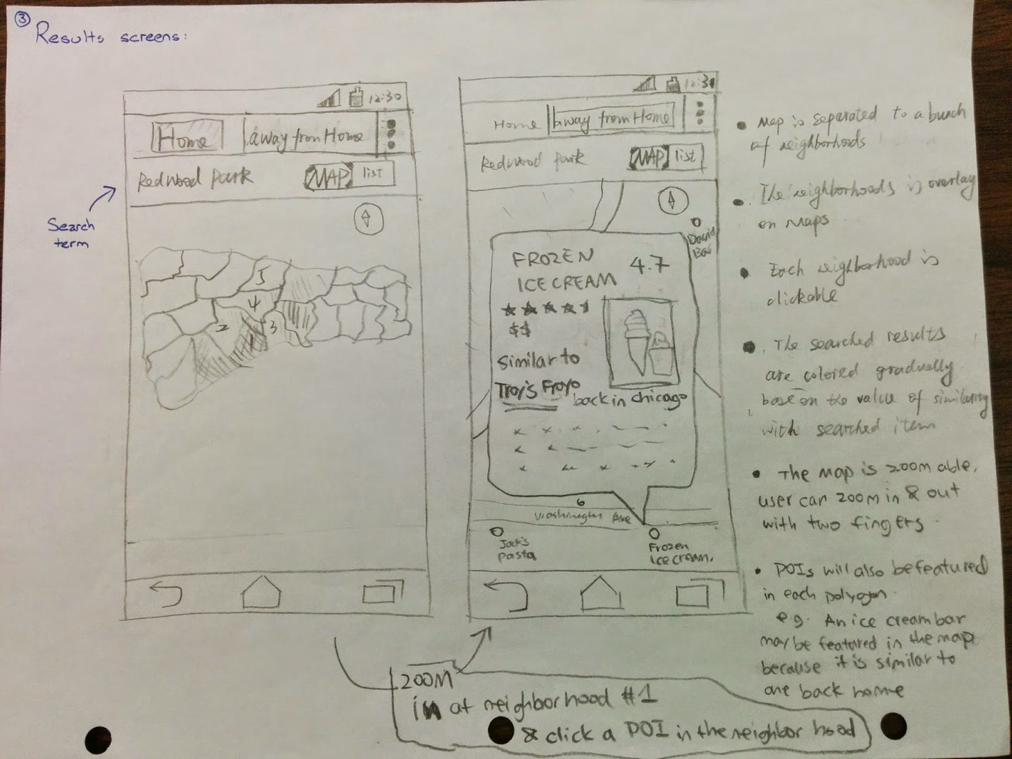 ③
Results screens:
12:30
Home
away from Home
Redwood Park
MAP
list
Search
term
5
4
2
3
1
12:31
Home
away from Home
Redwood Park
MAP
list
FROZEN
ICE CREAM
4.7
$$
Similar to
Troy's Froyo
back in chicago
6
Washington Ave
Jack's
Pasta
Frozen
Ice cream.
ZOOM
in at neighborhood #1
& click a POI in the neighborhood
• Map is separated to a bunch
of neighborhoods
• The neighborhoods is overlay
on Maps
• Each neighborhood is
clickable
• The searched results
are colored gradually
base on the value of similarity
with searched item
• The map is zoomable,
user can zoom in & out
with two fingers.
• POIs will also be featured
in each polygon.
e.g. An ice cream bar
may be featured in the map
because it is similar to
one back home